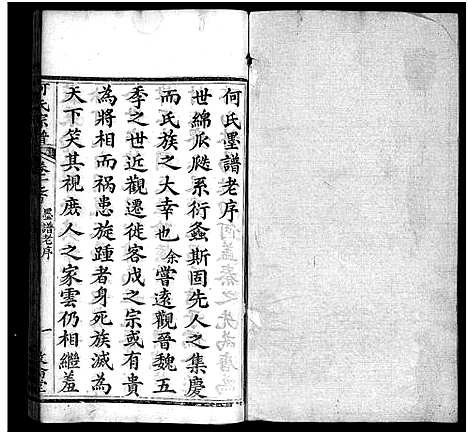 何氏墨譜老序
世綿瓜瓞系衍螽斯固先人之集慶
而氏族之大幸也余嘗遠觀晉魏五
季之世近觀遷徙客戍之宗或有貴
為將相而禍患旋踵者身死族滅為
天下笑其視庶人之家雲仍相繼羞
何氏宗譜
墨譜老序
一